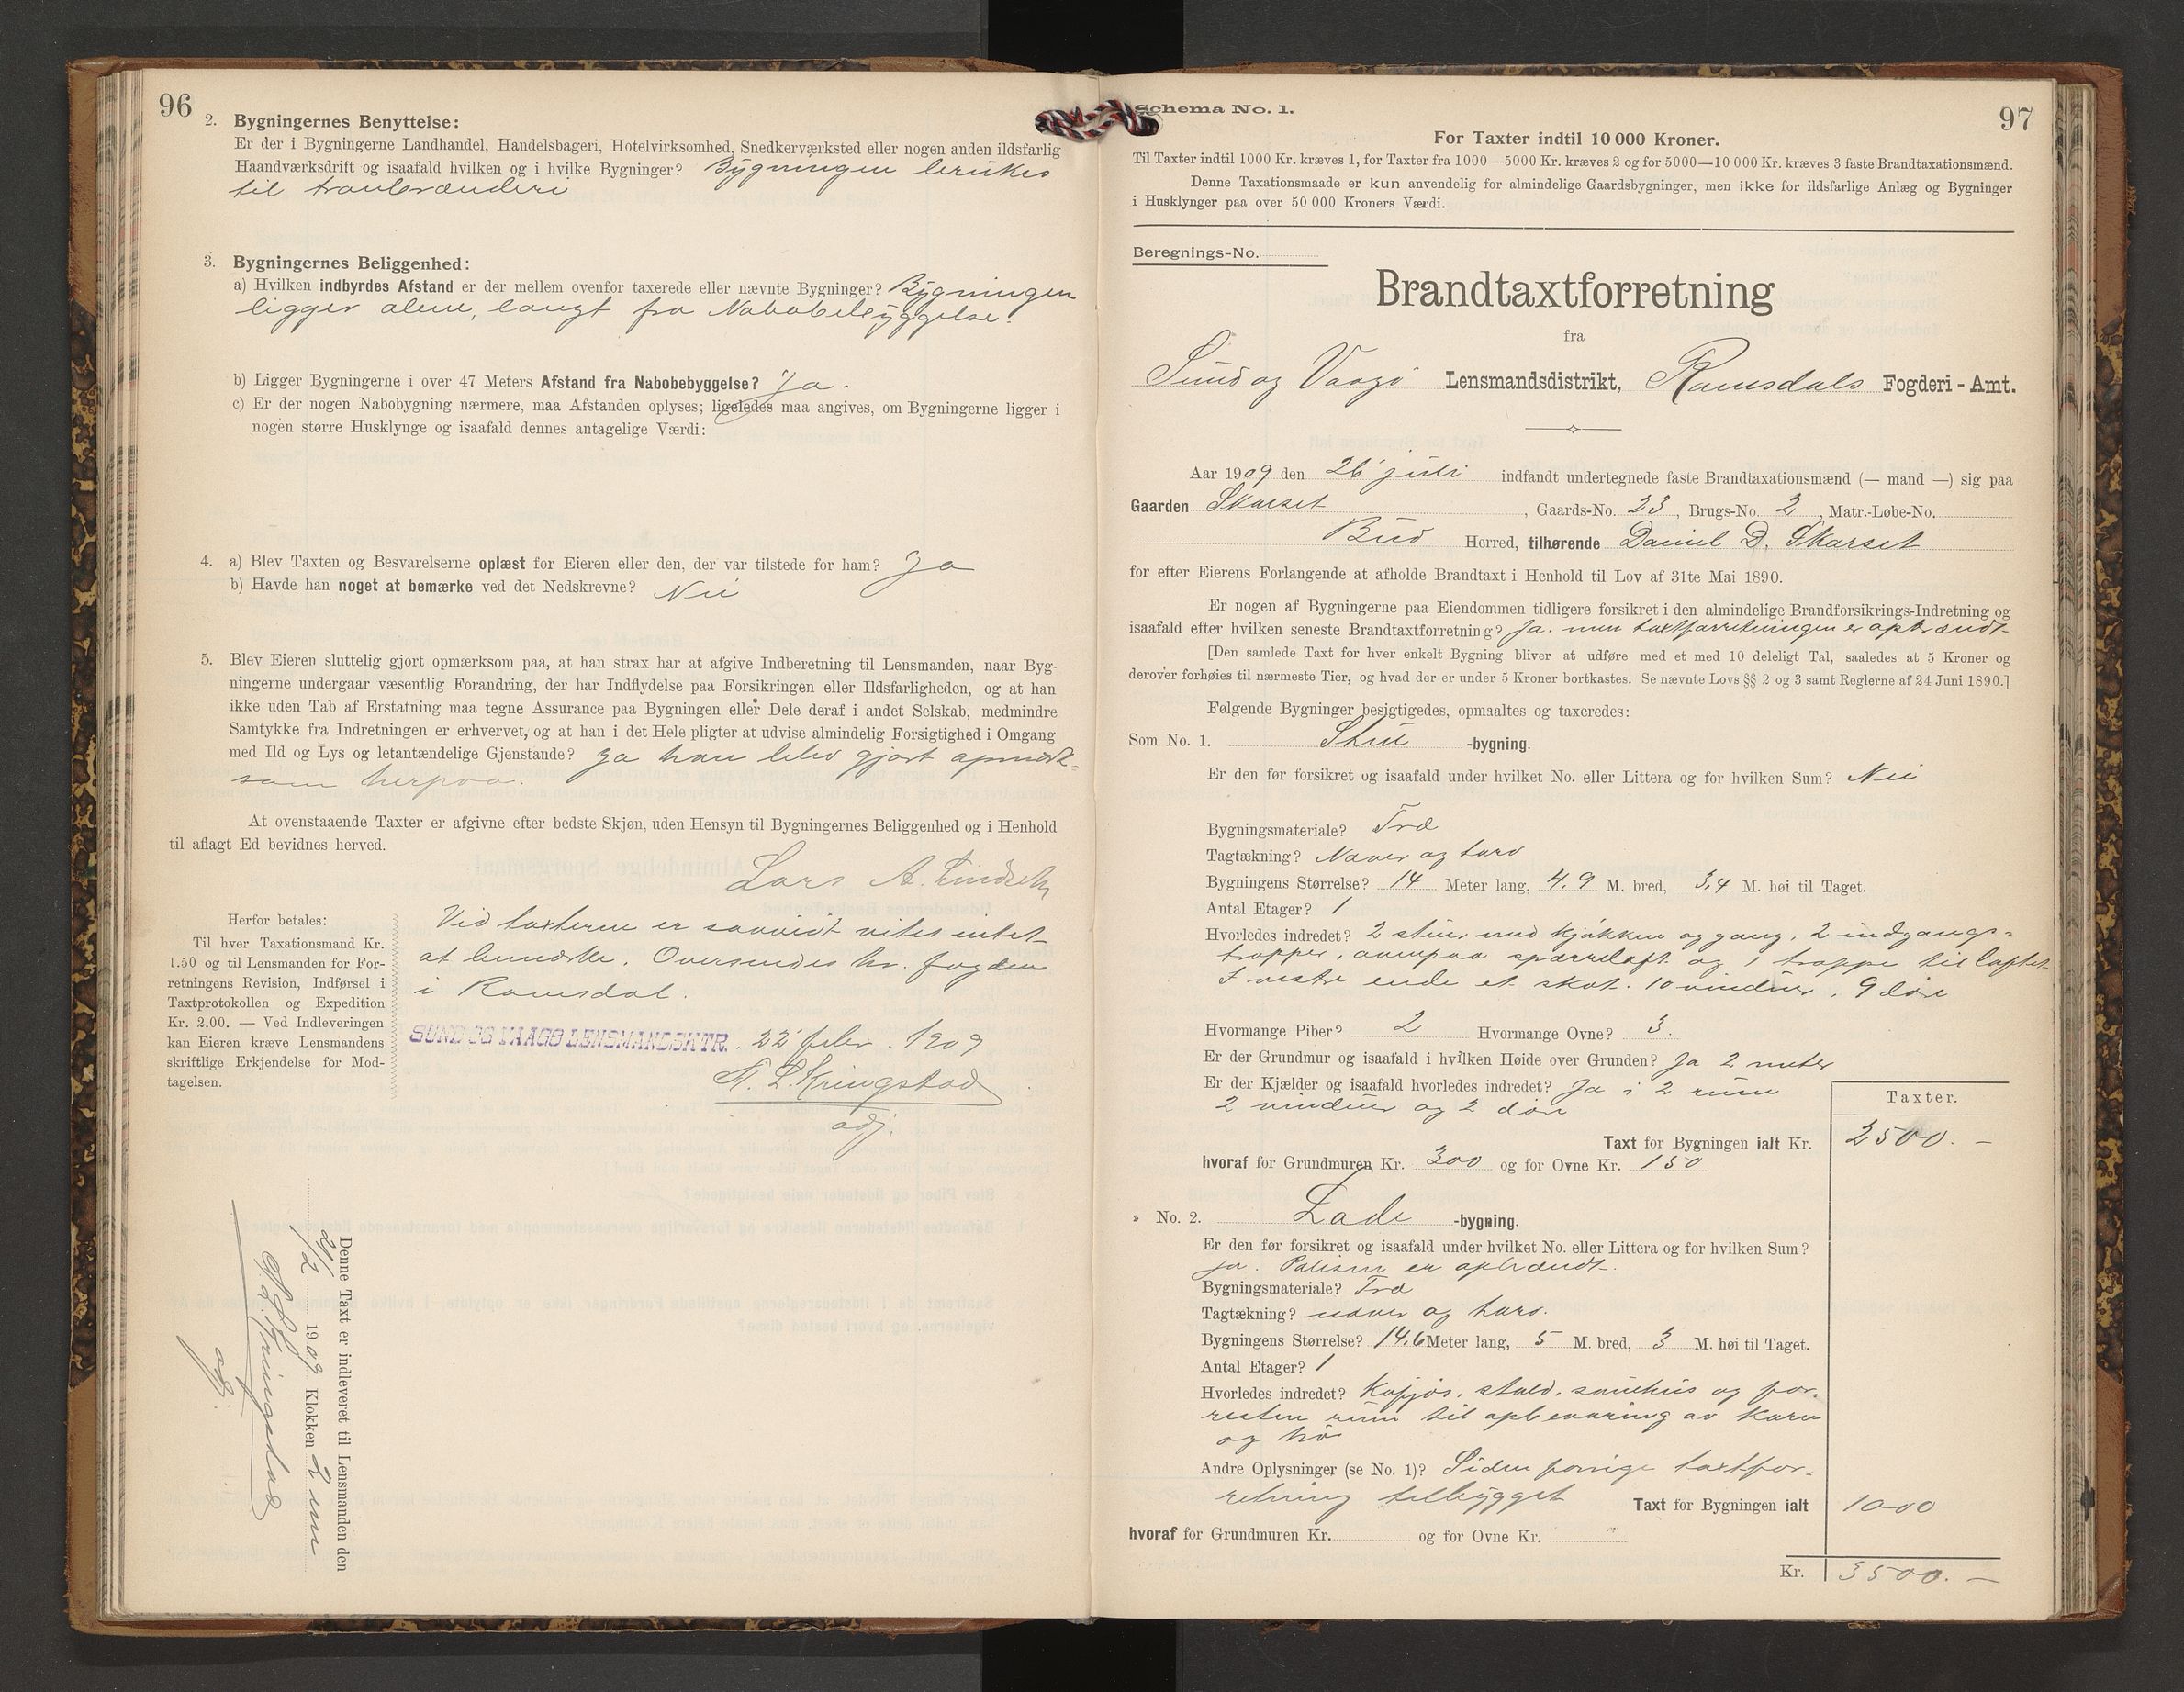 96
2. Bygningernes Benyttelse:
Er der i Bygningerne Landhandel, Handelsbageri, Hotelvirksomhed, Snedkerværksted eller nogen anden ildsfarlig
Haandværksdrift og isaafald hvilken og i hvilke Bygninger? Bygningen brukes
til tranbrænderi
3. Bygningernes Beliggenhed:
a) Hvilken indbyrdes Afstand er der mellem ovenfor taxerede eller nævnte Bygninger? Bygningen
ligger alene, langt fra Nabobebyggelse.
b) Ligger Bygningerne i over 47 Meters Afstand fra Nabobebyggelse? Ja.
c) Er der nogen Nabobygning nærmere, maa Afstanden oplyses; ligeledes maa angives, om Bygningerne ligger i
nogen større Husklynge og isaafald dennes antagelige Værdi:
4. a) Blev Taxten og Besvarelserne oplæst for Eieren eller den, der var tilstede for ham? Ja
b) Havde han noget at bemærke ved det Nedskrevne? Nei
5. Blev Eieren sluttelig gjort opmærksom paa, at han strax har at afgive Indberetning til Lensmanden, naar Byg-
ningerne undergaar væsentlig Forandring, der har Indflydelse paa Forsikringen eller Ildsfarligheden, og at han
ikke uden Tab af Erstatning maa tegne Assurance paa Bygningen eller Dele deraf i andet Selskab, medmindre
Samtykke fra Indretningen er erhvervet, og at han i det Hele pligter at udvise almindelig Forsigtighed i Omgang
med Ild og Lys og letantændelige Gjenstande? Ja han blev gjort opmærk-
som herpaa.
At ovenstaaende Taxter er afgivne efter bedste Skjøn, uden Hensyn til Bygningernes Beliggenhed og i Henhold
til aflagt Ed bevidnes herved.
Lars A. Lindseth
Herfor betales:
Til hver Taxationsmand Kr.
1.50 og til Lensmanden for For-
retningens Revision, Indførsel i
Taxtprotokollen og Expedition
Kr. 2.00. — Ved Indleveringen
kan Eieren kræve Lensmandens
skriftlige Erkjendelse for Mod-
tagelsen.
Ved taxterne er saavidt vites intet
at bemærke. Oversendes hr. fogden
i Romsdal.
SUND OG VAAGØ LENSMANDSKTR. 22' febr. 1909
N. L. Kringstad
adj.
Denne Taxt er indleveret til Lensmanden den
21/2 1909 Klokken 2 em
N. L. Kringstad
adj.
97
Schema No. 1.
For Taxter indtil 10 000 Kroner.
Til Taxter indtil 1000 Kr. kræves 1, for Taxter fra 1000—5000 Kr. kræves 2 og for 5000—10 000 Kr. kræves 3 faste Brandtaxationsmænd.
Denne Taxationsmaade er kun anvendelig for almindelige Gaardsbygninger, men ikke for ildsfarlige Anlæg og Bygninger
i Husklynger paa over 50 000 Kroners Værdi.
Beregnings-No.
Brandtaxtforretning
fra
Sund og Vaagø Lensmandsdistrikt, Romsdals Fogderi - Amt.
Aar 1909 den 26' juli indfandt undertegnede faste Brandtaxationsmænd (— mand —) sig paa
Gaarden Skarset, Gaards-No. 23, Brugs-No. 2, Matr.-Løbe-No.
Bud Herred, tilhørende Daniel D. Skarset
for efter Eierens Forlangende at afholde Brandtaxt i Henhold til Lov af 31te Mai 1890.
Er nogen af Bygningerne paa Eiendommen tidligere forsikret i den almindelige Brandforsikrings-Indretning og
isaafald efter hvilken seneste Brandtaxtforretning? Ja. men taxtforretningen er opbrændt
[Den samlede Taxt for hver enkelt Bygning bliver at udføre med et med 10 deleligt Tal, saaledes at 5 Kroner og
derover forhøies til nærmeste Tier, og hvad der er under 5 Kroner bortkastes. Se nævnte Lovs §§ 2 og 3 samt Reglerne af 24 Juni 1890.]
Følgende Bygninger besigtigedes, opmaaltes og taxeredes:
Som No. 1. Stue -bygning.
Er den før forsikret og isaafald under hvilket No. eller Littera og for hvilken Sum? Nei
Bygningsmateriale? Træ
Tagtækning? Næver og torv
Bygningens Størrelse? 14 Meter lang, 4.9 M. bred, 3,4 M. høi til Taget.
Antal Etager? 1
Hvorledes indredet? 2 stuer med kjøkken og gang, 2 indgangs-
trapper, ovenpaa sparreloft og 1 trappe til loftet
I vestre ende et skot. 10 vinduer, 9 døre
Hvormange Piber? 2 Hvormange Ovne? 3.
Er der Grundmur og isaafald i hvilken Høide over Grunden? Ja 2 meter
Er der Kjælder og isaafald hvorledes indredet? Ja i 2 rum
2 vinduer og 2 døre
Taxter.
Taxt for Bygningen ialt Kr. 2500. —
hvoraf for Grundmuren Kr. 300 og for Ovne Kr. 150
» No. 2. Lade -bygning.
Er den før forsikret og isaafald under hvilket No. eller Littera og for hvilken Sum?
Ja. Polisen er opbrændt.
Bygningsmateriale? Træ
Tagtækning? næver og torv.
Bygningens Størrelse? 14.6 Meter lang, 5 M. bred, 3 M. høi til Taget.
Antal Etager? 1
Hvorledes indredet? Kofjøs, stald, sauehus og for-
resten rum til opbevaring av korn
og hø
Andre Oplysninger (se No. 1)? Siden forrige taxtfor-
retning tilbygget Taxt for Bygningen ialt 1000
hvoraf for Grundmuren Kr. og for Ovne Kr.
Kr. 3500. —